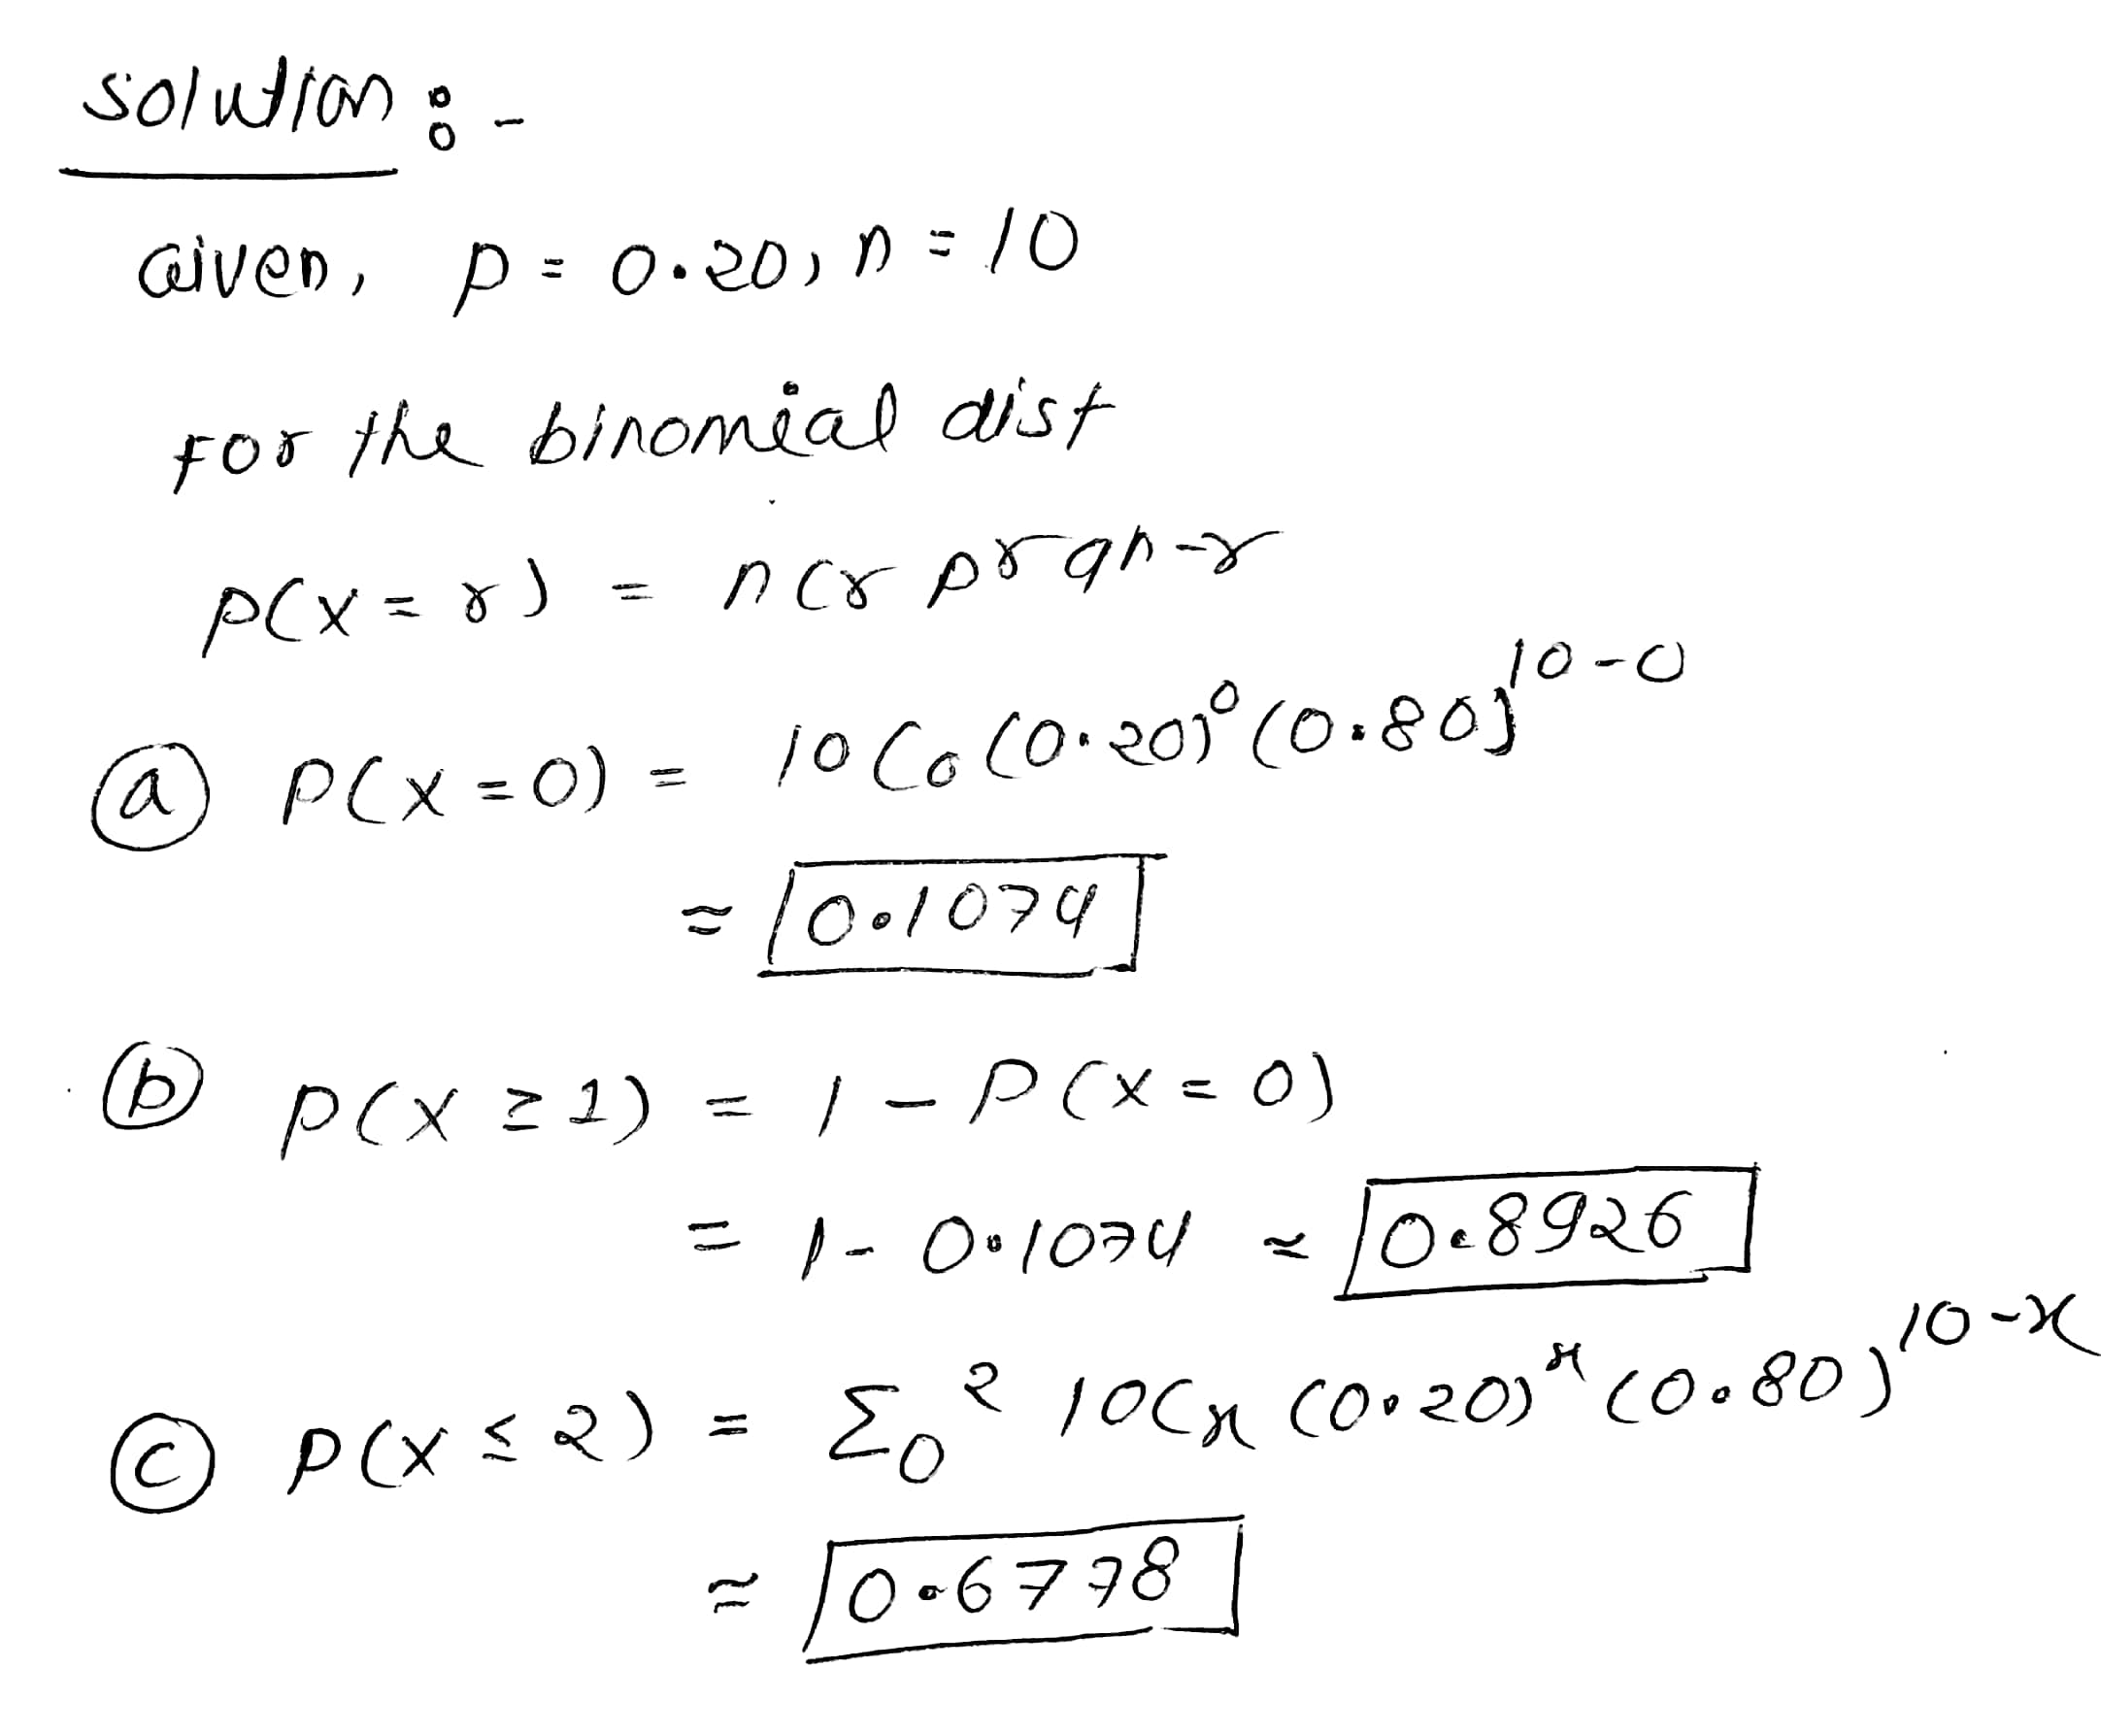 solution :-
Given, p = 0.20, n = 10
For the binomial dist
p(x = r) = ncr pr qn-r
(a) p(x = 0) = 10C₀ (0.20)⁰ (0.80)¹⁰⁻⁰
≈ 0.1074
(b) p(x ≥ 1) = 1 - p(x = 0)
= 1 - 0.1074 ≈ 0.8926
(c) p(x ≤ 2) = Σ₀² 10Cx (0.20)ˣ (0.80)¹⁰⁻ˣ
≈ 0.6778